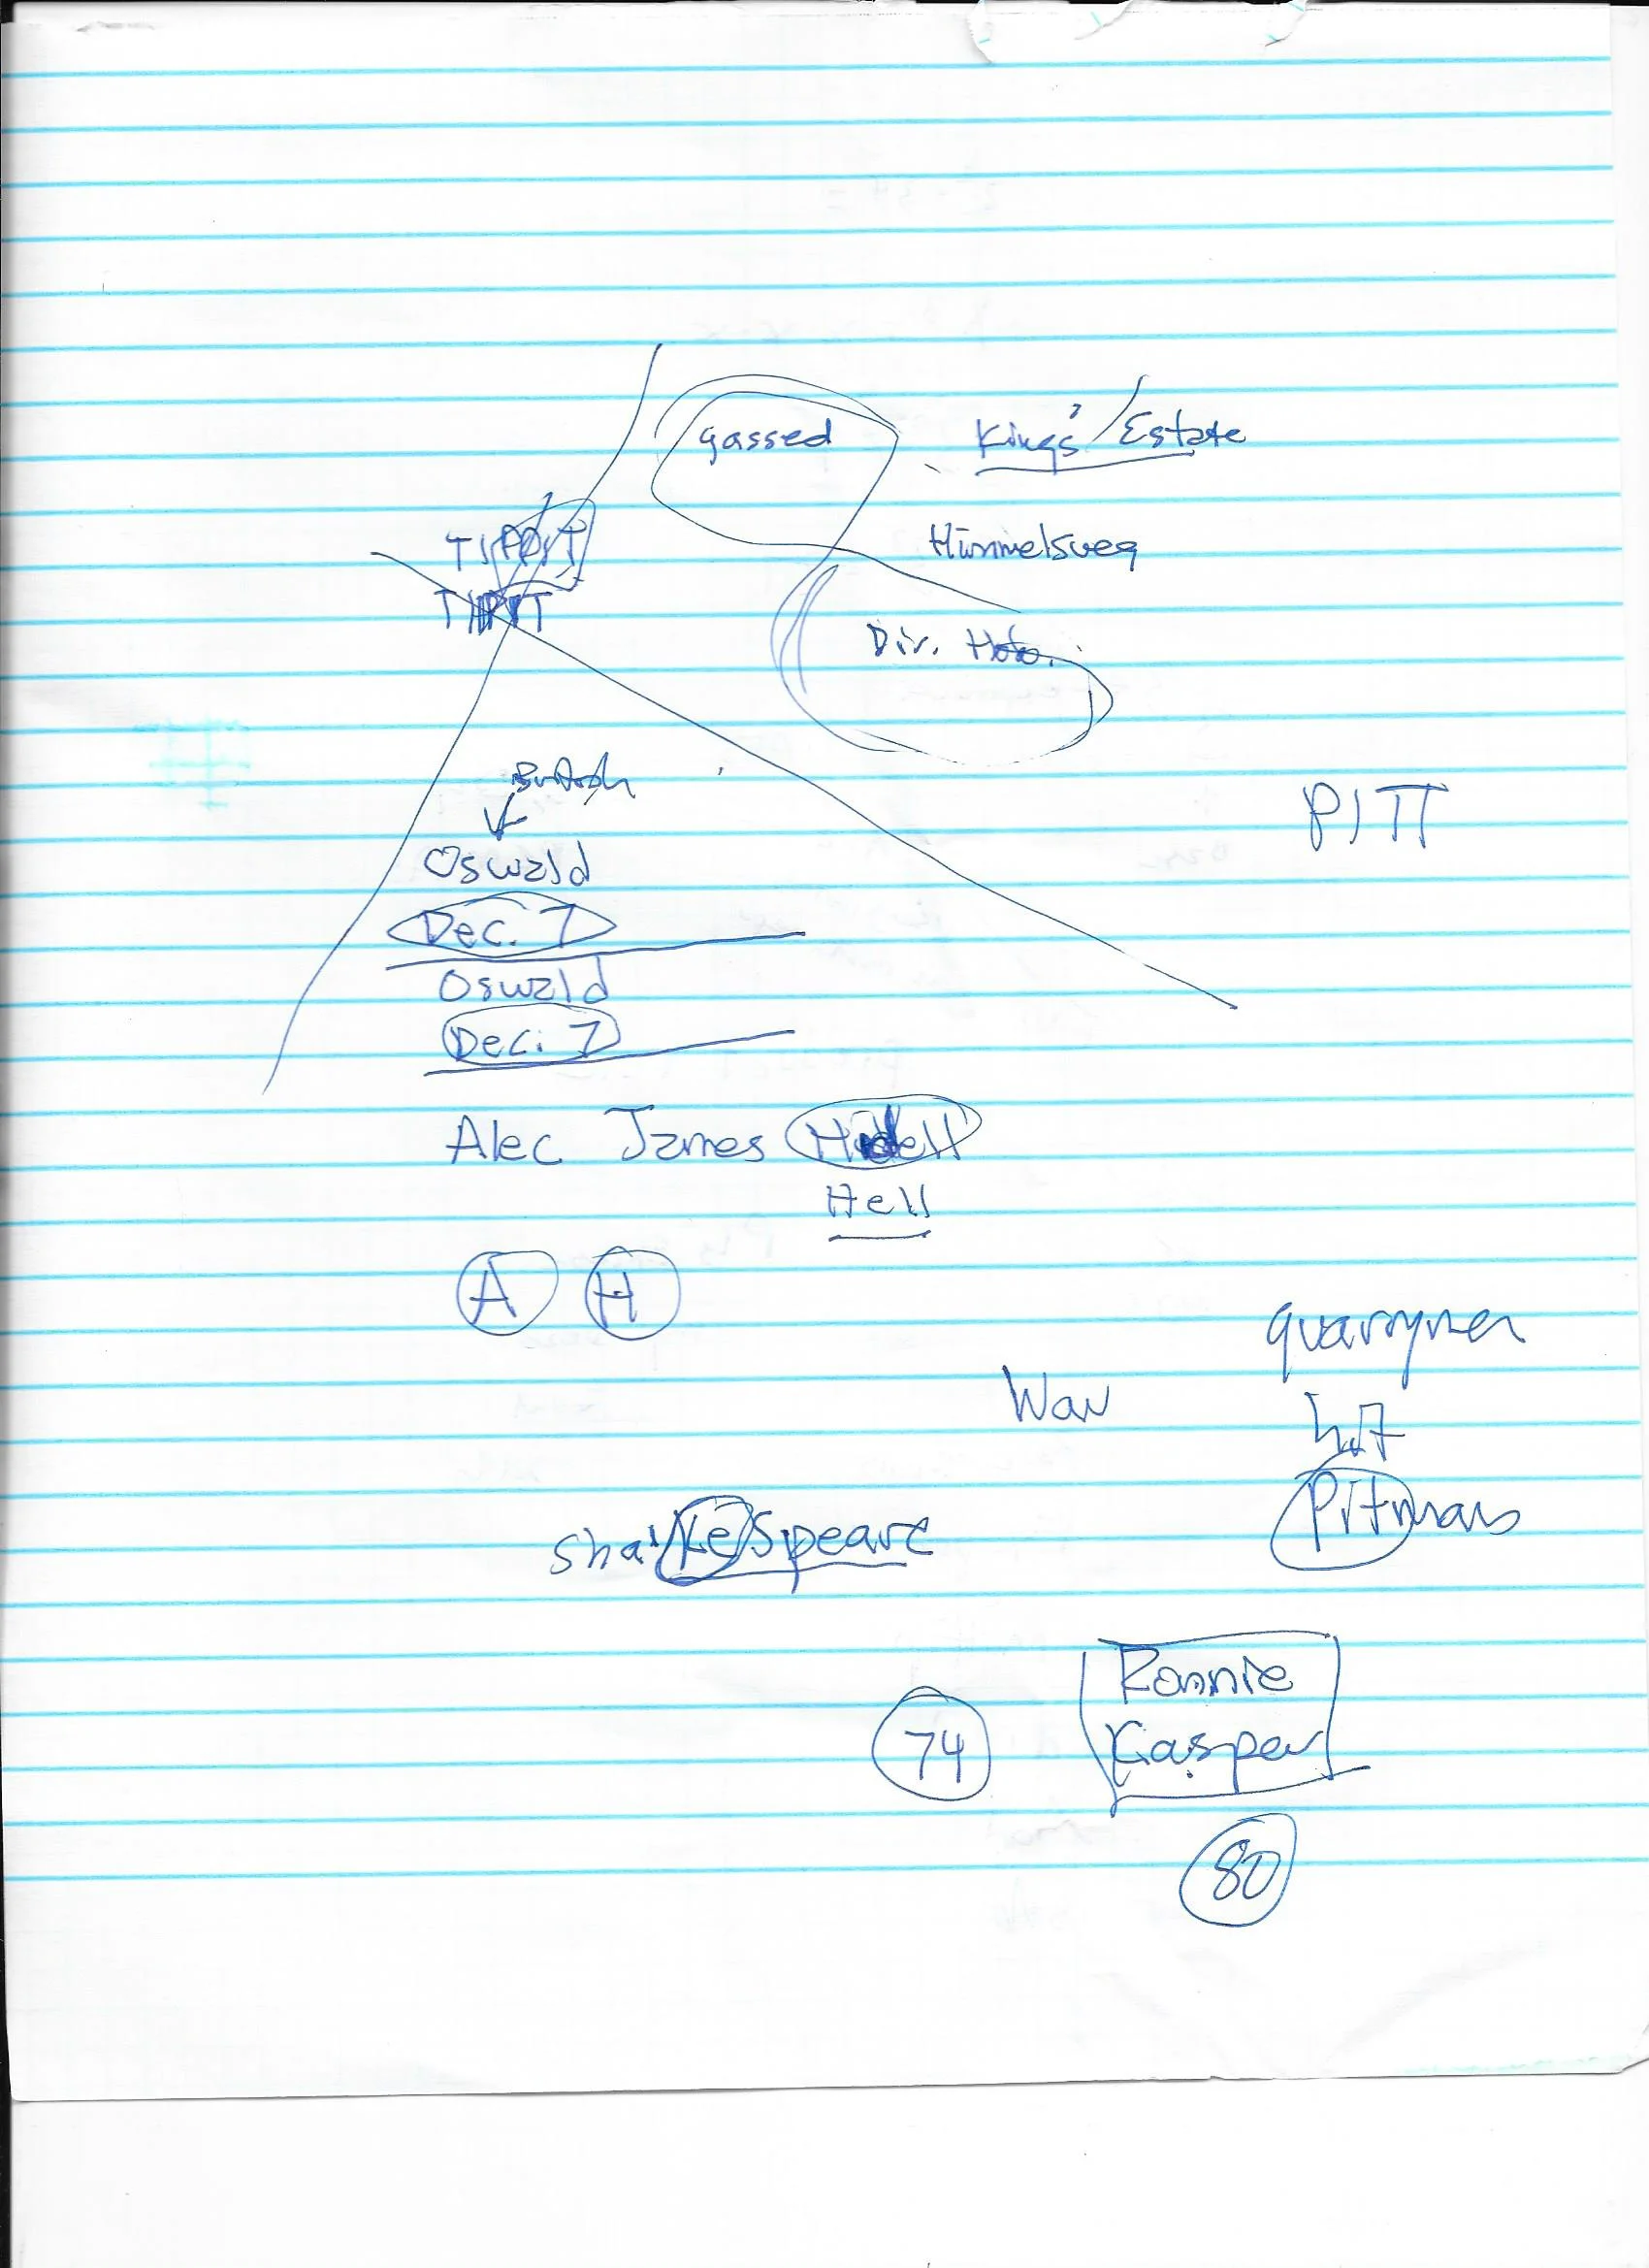 gassed Kings' / Estate
TIPPIT Himmelsweg
TIPPIT
Div. 
PITT
Oswald
Dec. 7
Oswald
Dec. 7
Alec James Hidell
Hell
A H
quarryman
War
hit
Pitman
Shakespeare
Ronnie
74 Kasper
80